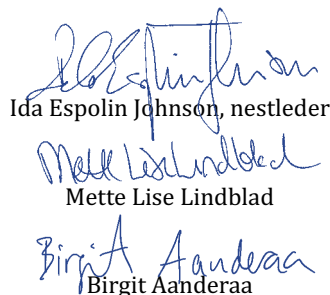 Ida Espolin Johnson
Ida Espolin Johnson, nestleder
Mette Lise Lindblad
Mette Lise Lindblad
Birgit Aanderaa
Birgit Aanderaa